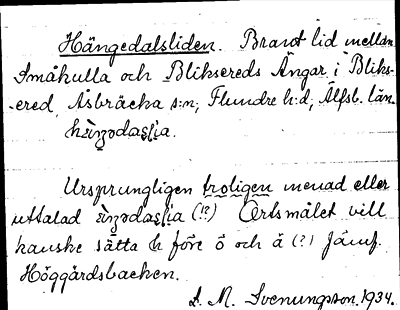 Hängedalsliden. Brant lid mellan
Småkulla och Bliksereds Ängar i Bliks-
ered, Åsbräcka s:n, Flundre h:d, Älfsb. län.
Ursprungligen troligen menad eller
uttalad (!?) Ortsmålet vill
kanske sätta h före ö och ä (?) Jämf.
Höggårdsbacken.
S. M. Svenungsson. 1934.